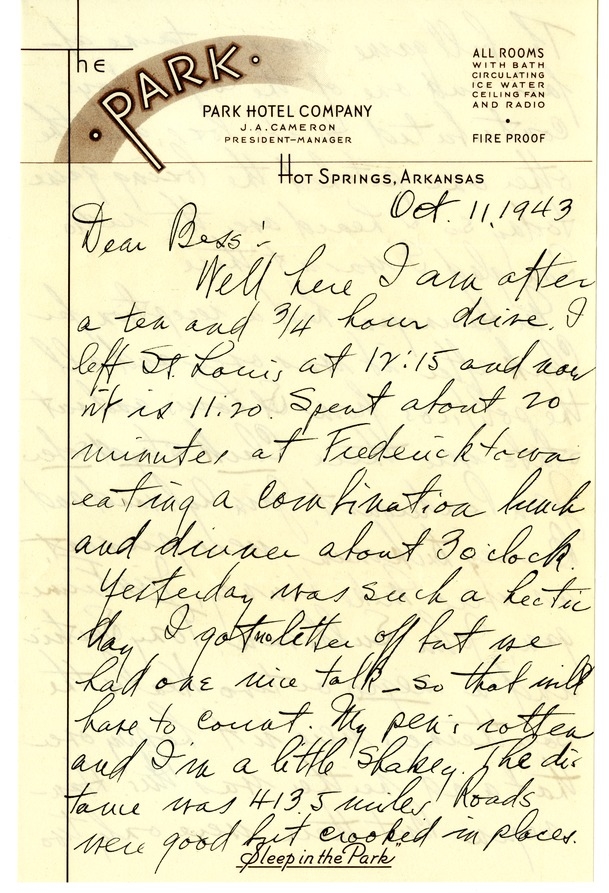 The PARK
PARK HOTEL COMPANY
J. A. CAMERON
PRESIDENT-MANAGER
ALL ROOMS
WITH BATH
CIRCULATING
ICE WATER
CEILING FAN
AND RADIO
•
FIRE PROOF
HOT SPRINGS, ARKANSAS
Oct. 11, 1943
Dear Bess:
Well here I am after
a ten and 3/4 hour drive. I
left St. Louis at 12:15 and now
it is 11:20. Spent about 20
minutes at Fredericktown
eating a combination lunch
and dinner about 3 o'clock.
Yesterday was such a hectic
day I got no letter off but we
had one nice talk - so that will
have to count. My pen is rotten
and I'm a little shakey. The dis
tance was 413.5 miles. Roads
were good but crooked in places.
Sleep in the Park